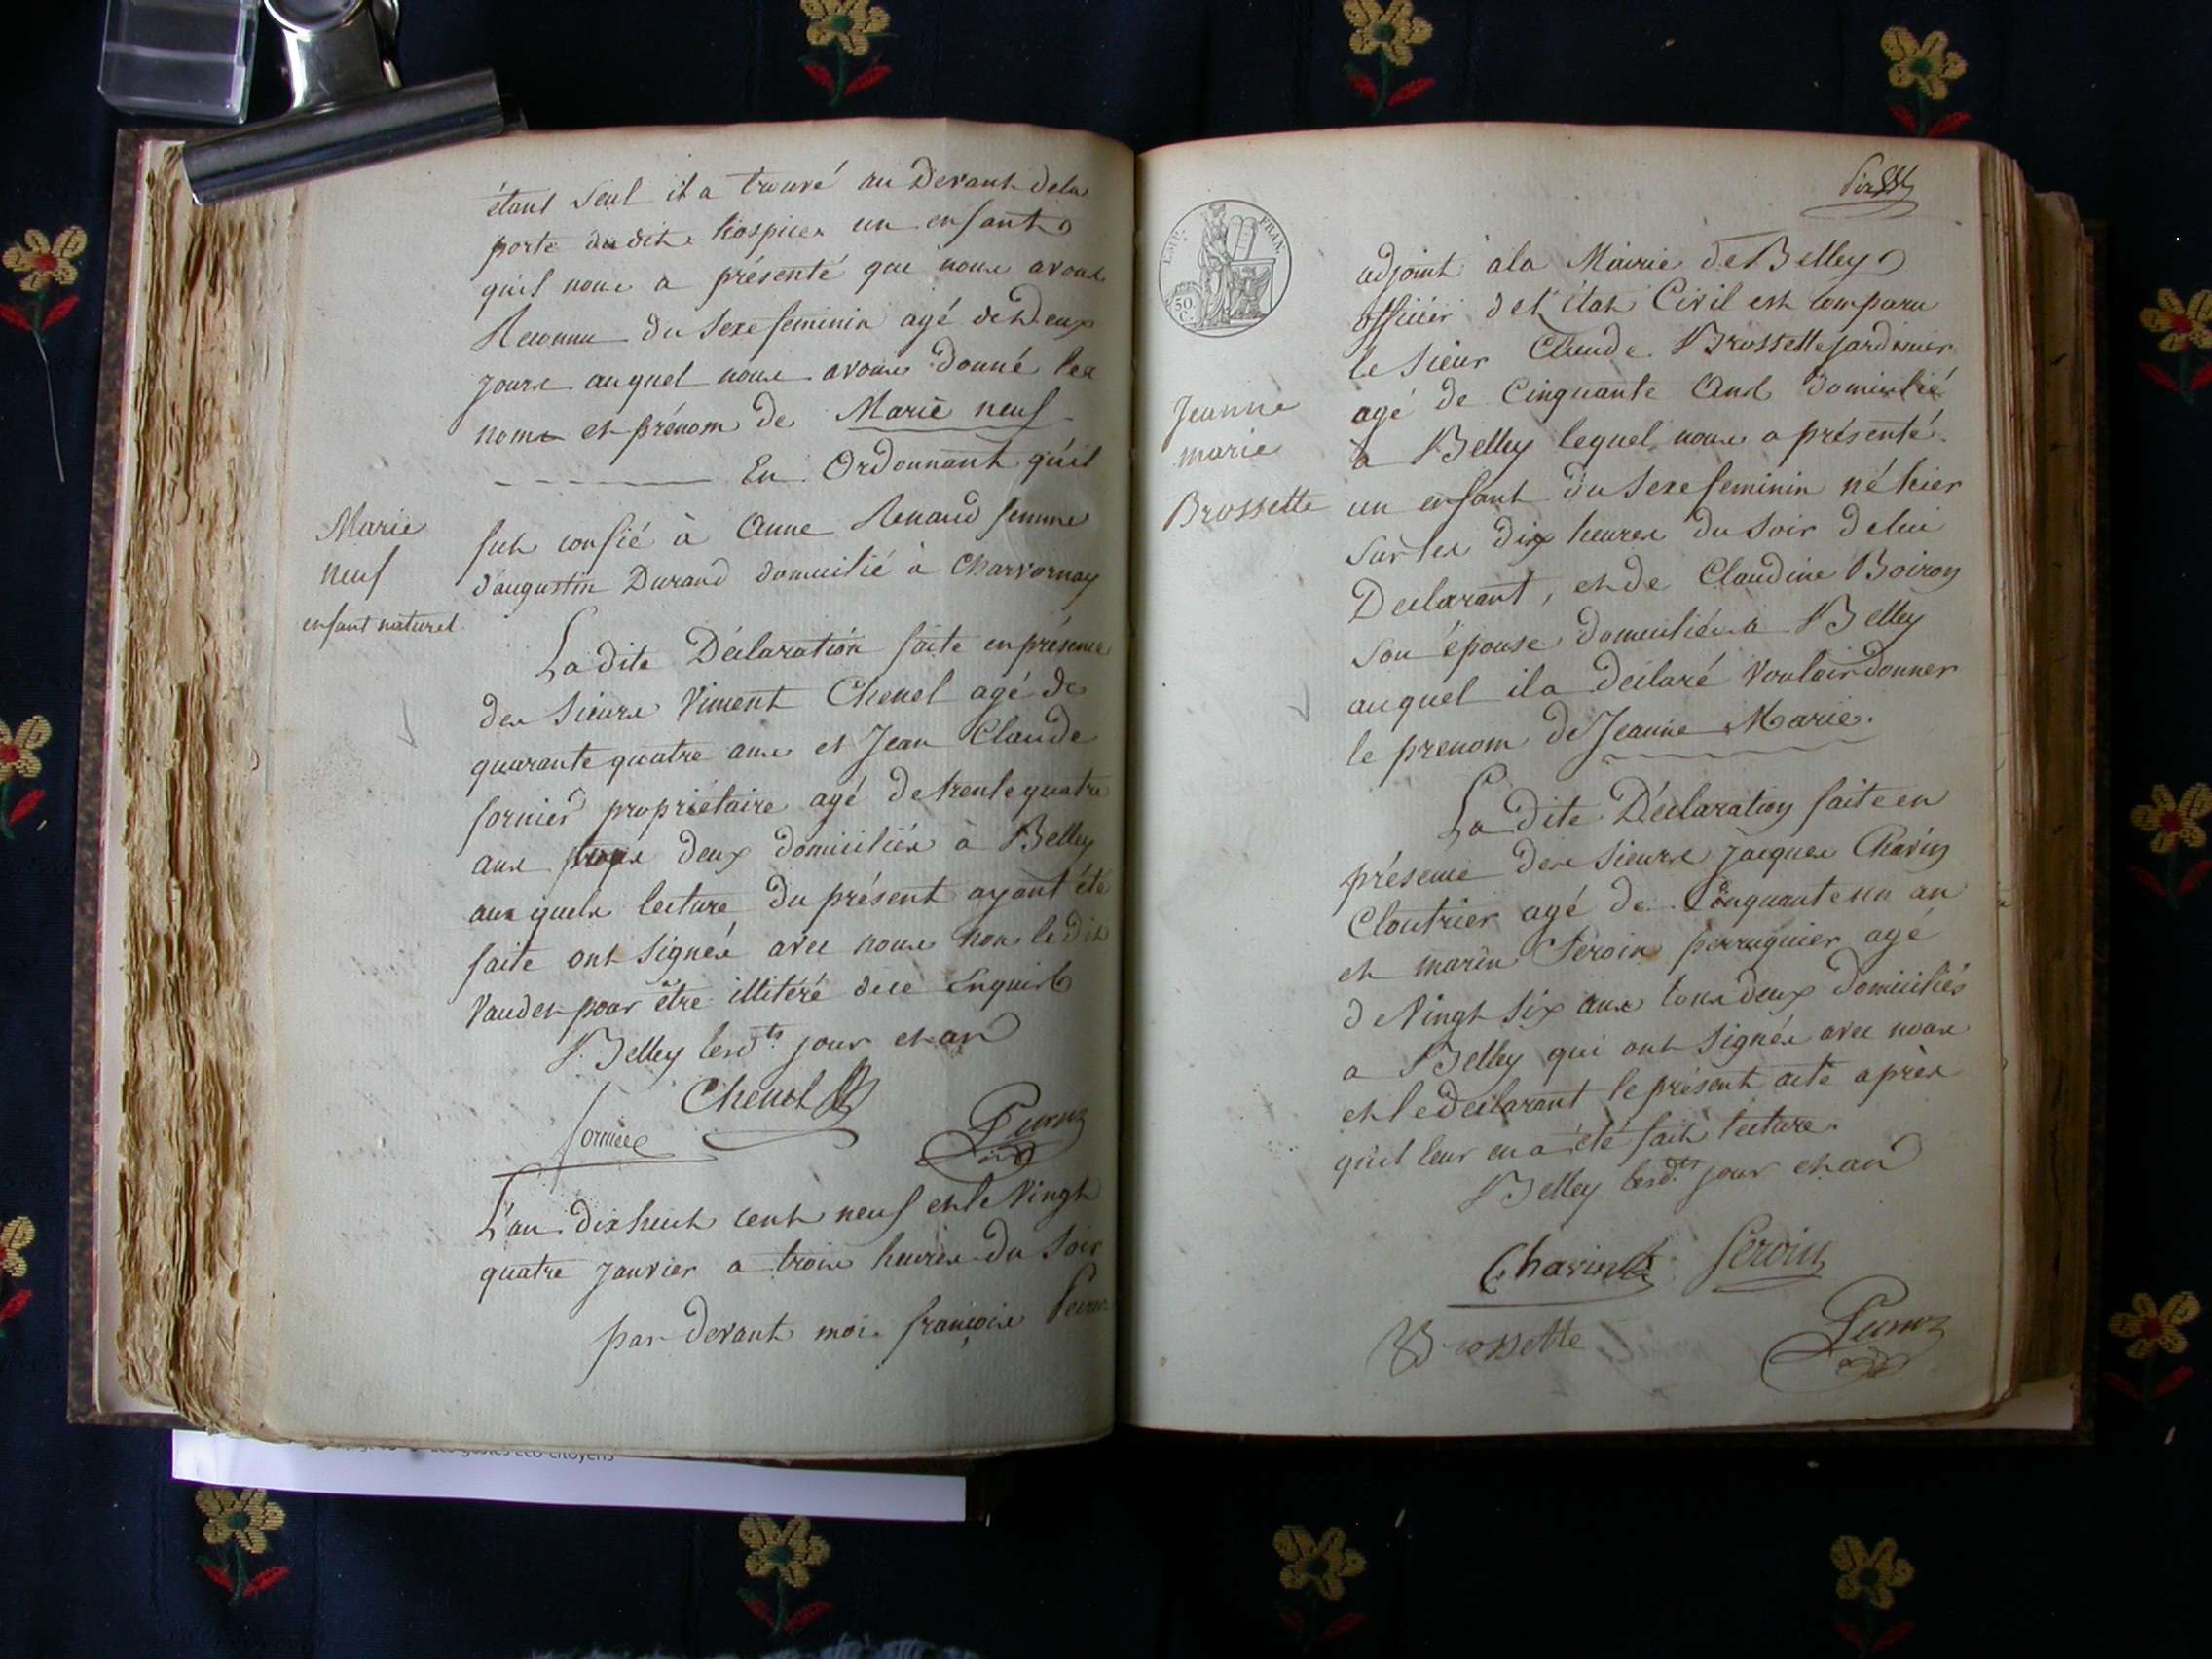 étant seul il a trouvé au Devant dela
porte du dit hospice un enfant
qu'il nous a présenté que nous avons
Reconnu du Sexe feminin agé de Deux
jours auquel nous avons donné les
noms et prénom de Marie neuf
En Ordonnant qu'il
Marie
neuf
enfant naturel
fut confié à Anne Renaud femme
d'augustin Durand domicilié à Charvornay
La dite Déclaration faite en présence
des Sieurs Viment Chenel agé de
quarante quatre ans et Jean Claude
fornier propriétaire agé de trente quatre
ans deux domiciliés à Belley
aux quels lecture du présent ayant été
faite ont signés avec nous non le dit
Vaudet pour être illitéré de ce Enquis
Belley lesdts jour et an
Chenel
fornier
L'an dix huit cent neuf et le Vingt
quatre janvier a trois heures du Soir
par devant moi françois
EMP. FRAN.
50 C.
adjoint à la Mairie de Belley
officier de l'état Civil est comparu
le Sieur Claude Brossette jardinier
agé de Cinquante Ans domicilié
à Belley lequel nous a présenté
Jeanne
marie
Brossette
un enfant du Sexe feminin né hier
sur les dix heures du Soir de lui
Declarant, et de Claudine Boiron
Son épouse domiciliés a Belley
auquel il a déclaré Vouloir donner
le prenom de Jeanne Marie.
La dite Déclaration faite en
présence des Sieurs jacques Charvin
Cloutrier agé de Cinquante un an
et marin Feroin perruquier agé
de Vingt Six ans tous deux domiciliés
a Belley qui ont signés avec nous
et le declarant le présent acte après
qu'il leur en a été fait lecture.
Belley lesdts jour et an
Charvin
feroin
Brossette